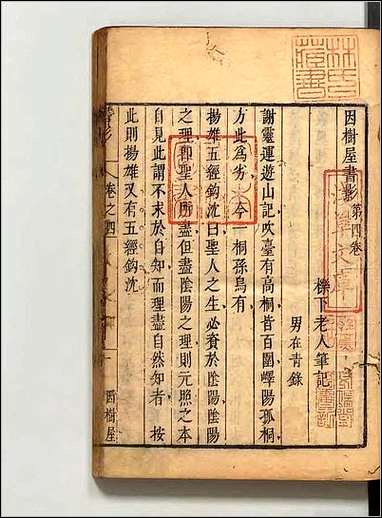 因樹屋書影第四卷
櫟下老人筆記
男在青錄
謝靈運遊山記吹臺有高桐皆百圍嶧陽孤桐
方此為劣今一桐孫烏有
揚雄五經鈎沈曰聖人之生必資於陰陽陰陽
之理即聖人所盡但盡陰陽之理則元照之本
自見此謂不求於自知而理盡自然知者按
此則揚雄又有五經鈎沈
書影
卷之四
一
因樹屋
林氏藏書